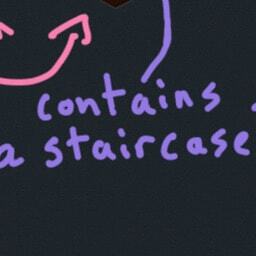 contains
a staircase